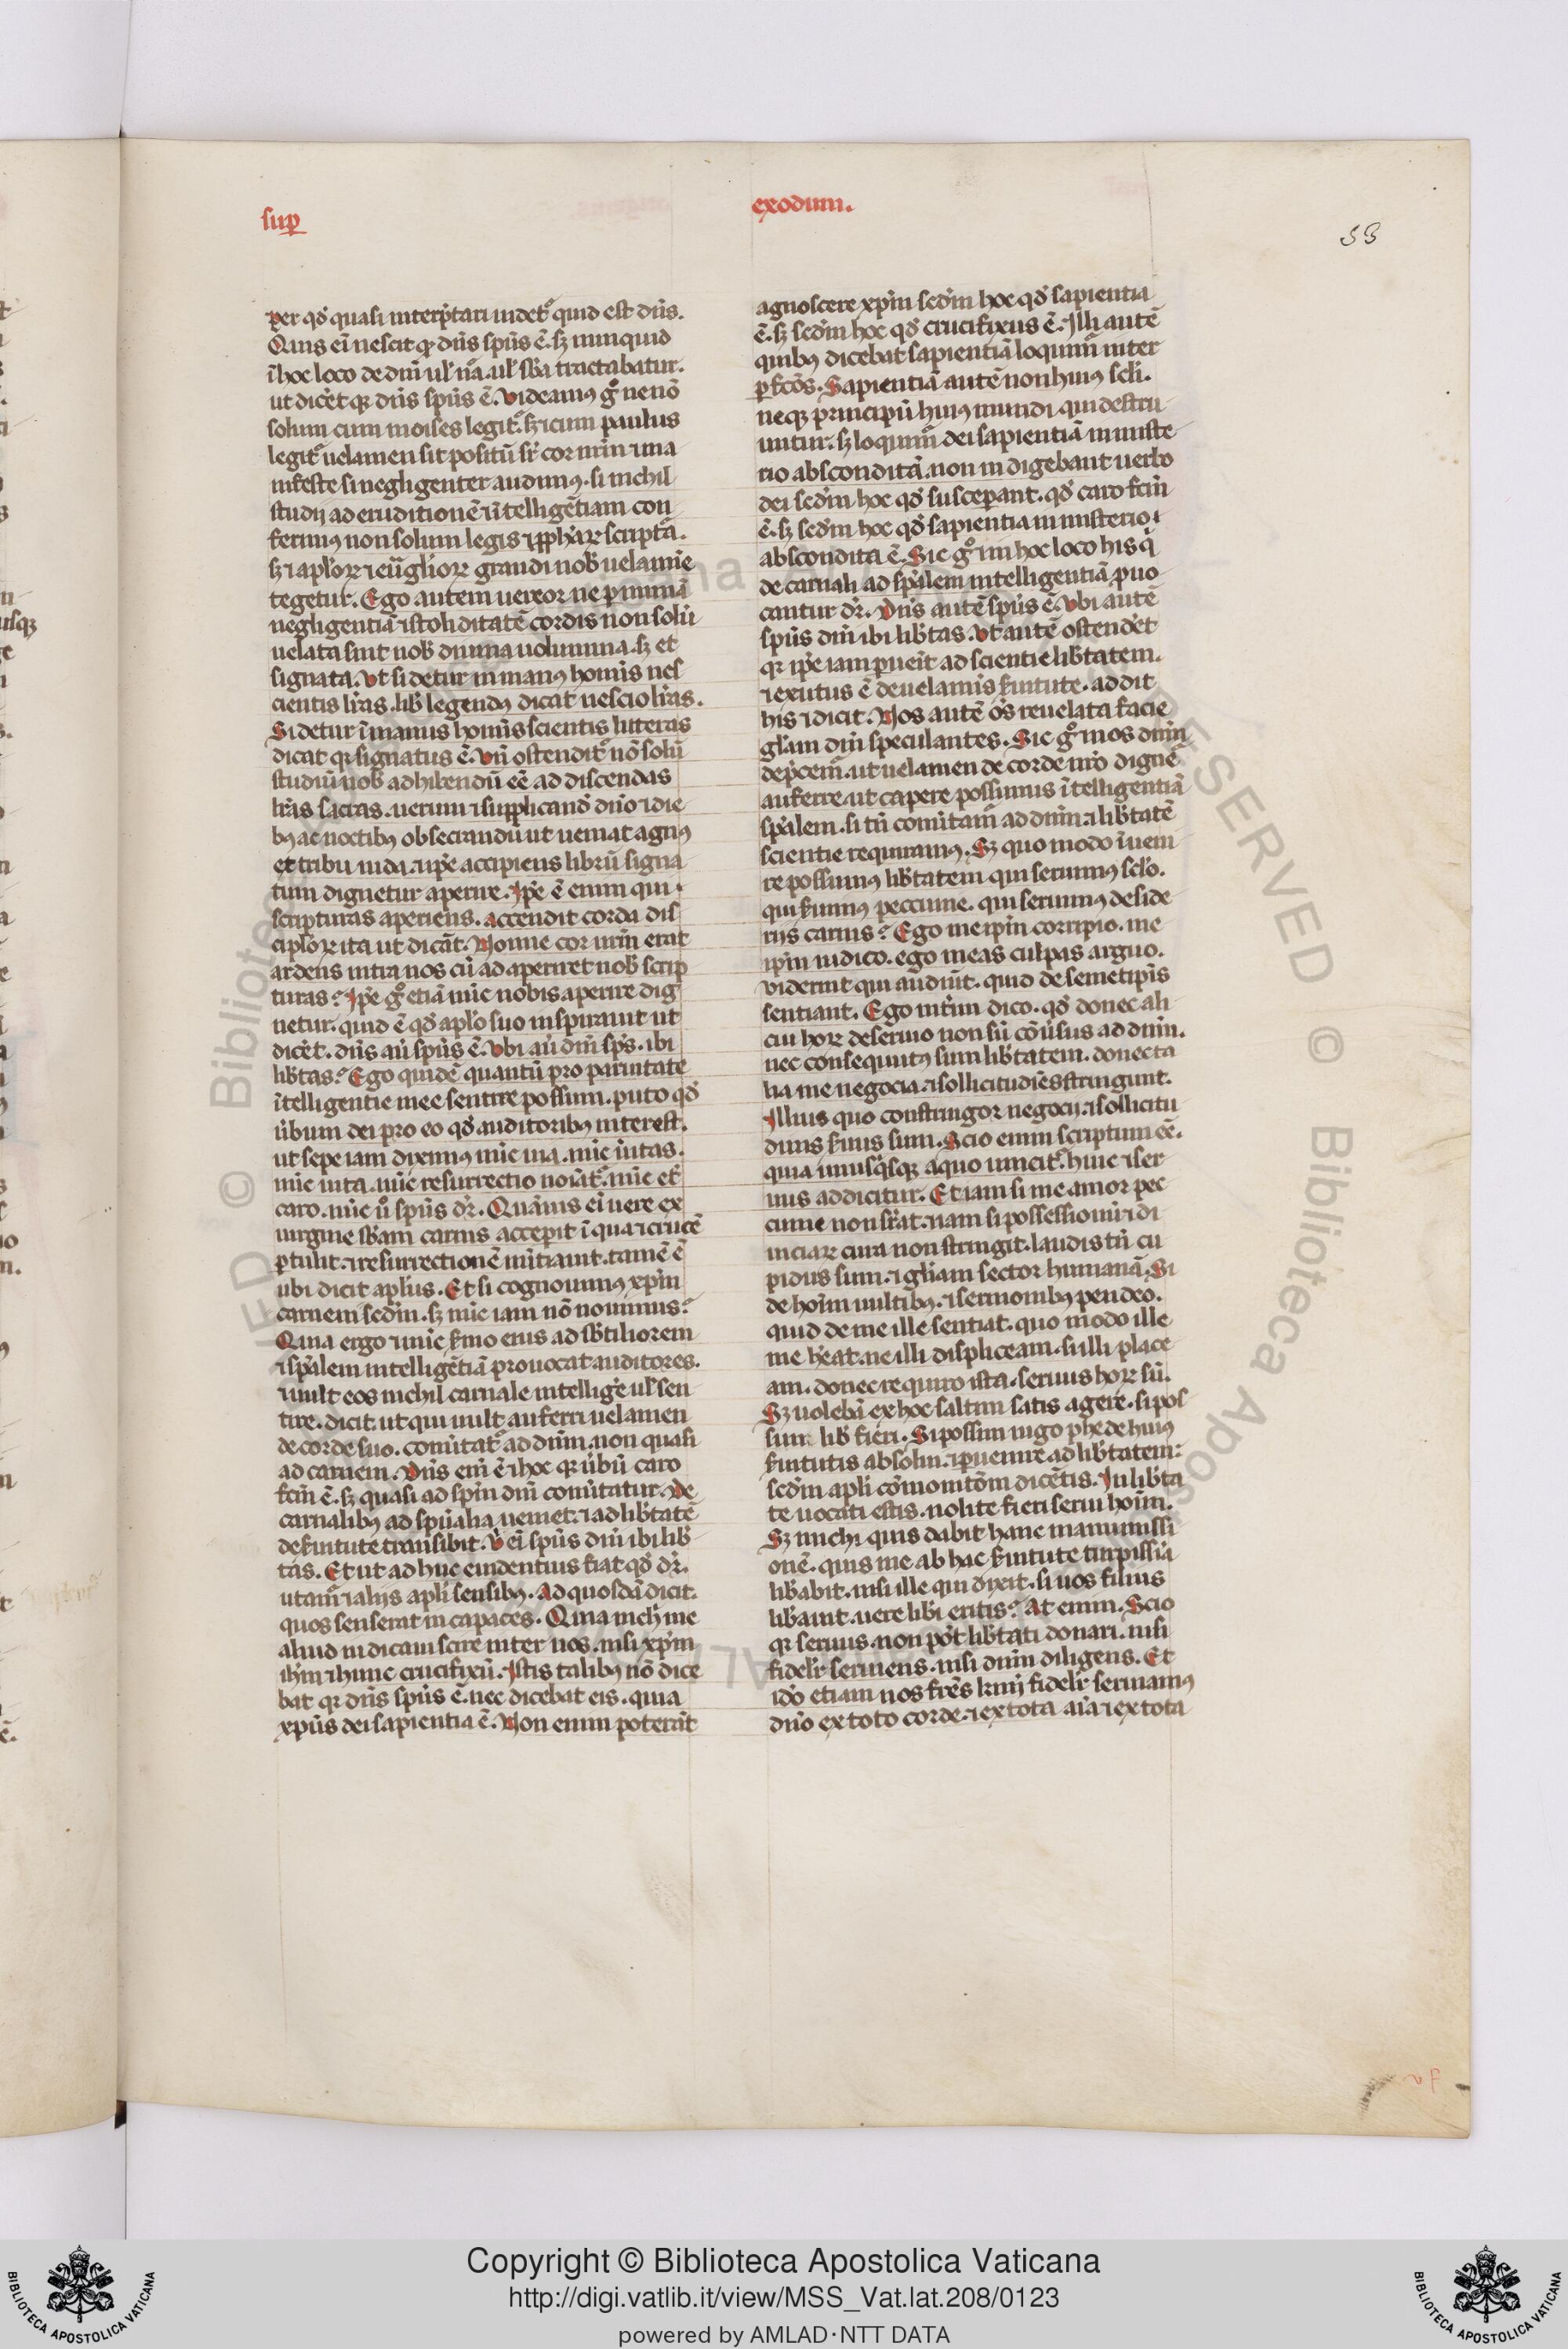 sup̱
exodum.
53
per qd̾ quasi interp̾tari uidet᷑ quid est dn̄s.
Quis ei̾ nescit qꝫ dn̄s sp̄us ē. sꝫ nunquid
ī hoc loco de dn̄i ul̾ na̾. ul̾ sb̄a tractabatur.
ut dic̾et qꝫ dn̄s sp̄us ē. Videamꝰ g̊ ne nō
solum cum moises legit᷑. sꝫ ⁊ cum paulus
legit᷑ uelamen sit positū sr̾ cor nr̄m ⁊ ma
nifeste si negligenter audimꝰ. si nichil
studij ad eruditionē ⁊ ītelligētiam con
ferimꝰ non solum legis ⁊ ꝓph̾aꝝ scripta̾.
sꝫ ⁊ apl̾oꝝ ⁊ eu̾gl̾ioꝝ grandi nob̾ uelamīe
tegetur. Ego autem uereor ne ꝑ nimiā
negligentiā ⁊ stoliditatē cordis non solū
uelata sint nob̾ diuina uolumina. sꝫ et
signata. Vt si detur in manꝰ homīs nes
cientis lr̄as. lib̾ legendꝰ dicat nescio lr̄as.
Si detur ī manus homīs scientis litteras
dicat qꝫ signatus ē. Vn̄ ostendit᷑ nō solū
studiū nob̾ adhibendū eē ad discendas
lr̄as sacras. uerum ⁊ supplicand̾ dn̄o ⁊ die
bꝰ ac noctibꝰ obsecrandū ut ueniat agnꝰ
et tribu iuda. ⁊ ip̄e accipiens librū signa
tum dignetur aperire. Ip̄e ē enim qui
scripturas aperiens. accendit corda dis
cipl̾oꝝ ita ut dicāt. Nonne cor nr̄m erat
ardens intra nos cū adaperiret nob̾ scrip
turas? Ip̄e g̊ etiā nūc nobis aperire dig
netur. quid ē qd̾ apl̾o suo inspirauit ut
dic̾et. dn̄s au̾ sp̄us ē. Vbi au̾ dn̄i sp̄s. ibi
lib̾tas? Ego quidē quantū pro paruitate
ītelligentie mee sentire possum. puto qd̾
u̾bum dei pro eo qd̾ auditoribꝰ interest.
ut sepe iam diximꝰ nūc uia. nūc u̾itas.
nūc uita. nūc resurrectio noīat᷑. nūc et̾
caro. nūc u̾o sp̄us dr̄. Quāuis ei̾ uere ex
uirgine sb̄am carnis accepit ī qua ⁊ crucē
ꝑtulit. ⁊ resurrectionē initiauit. tamē ē
ubi dicit apl̾us. Et si cognouimꝰ xp̄m
carnem sedm̾. sꝫ nūc iam nō nouimus?
Quia ergo ⁊ nūc s̾mo eius ad sb̾tiliorem
⁊ sp̄alem intelligētiā prouocat auditores.
⁊ uult eos nichil carnale intellig̾e ul̾ sen
tire. dicit. ut qui uult auferri uelamen
de corde suo. conu̾tat᷑ ad dn̄m. non quasi
ad carnem. Dn̄s eni̾ ē ⁊ hoc qꝫ u̾bū caro
fc̄m ē. sꝫ quasi ad sp̄m dn̄m conu̾tatur. De
carnalibꝰ ad sp̄ualia ueniet. ⁊ ad lib̾tatē
de s̾uitute transibit. V̾ ei̾ sp̄us dn̄i ibi lib̾
tas. Et ut adhuc euidentius fiat qd̾ dr̄.
utam᷑ ⁊ alijs apl̾i sensibꝰ. Ad quosdā dicit.
quos senserat incapaces. Quia nich̾ me
aliud iudicaui scire inter uos. nisi xp̄m
ihm̄ ⁊ hunc crucifixū. Istis talibꝰ nō dice
bat qꝫ dn̄s sp̄us ē. nec dicebat eis. quia
xp̄us dei sapientia ē. Non enim poterāt
agnoscere xp̄m sedm̾ hoc qd̾ sapientia
ē. sꝫ sedm̾ hoc qd̾ crucifixus ē. Illi autē
quibꝰ dicebat sapientiā loquim᷑ inter
ꝑfc̄os. Sapientiā autē non huiꝰ scl̾i.
neqꝫ principū huiꝰ mundi qui destru
untur. sꝫ loquim᷑ dei sapientiā in miste
rio absconditā. non indigebant uerbo
dei sedm̾ hoc qd̾ suscep̱ant. qd̾ caro fc̄m
ē. sꝫ sedm̾ hoc qd̾ sapientia in misterio
abscondita ē. Sic g̊ ⁊ in hoc loco his q̾
de carnali ad sp̄alem intelligentiā ꝓuo
cantur dr̄. Dn̄s autē sp̄us ē. Vbi autē
sp̄us dn̄i ibi lib̾tas. Vt autē ostend̾et
qꝫ ip̄e iam ꝑuen̾it ad scientie lib̾tatem.
⁊ exutus ē de uelamīs s̾uitute. addit
his ⁊ dicit. Nos autē om̄s reuelata facie
gl̾iam dn̄i speculantes. Sic g̊ ⁊ nos dn̄m
dep̾cem᷑. ut uelamen de corde nr̄o dignē
auferre. ut capere possimus ītelligentiā
sp̄alem. si tn̄ conu̾tam᷑ ad dn̄m. ⁊ lib̾tatē
scientie requiramꝰ. Sꝫ quo modo īueni
re possumꝰ lib̾tatem qui seruimꝰ scl̾o.
qui s̾uimꝰ peccunie. qui seruimꝰ deside
rijs carnis? Ego me ip̄m corripio. me
ip̄m iudico. ego meas culpas arguo.
viderint qui audiūt. quid de semetip̄is
sentiant. Ego int̾im dico. qd̾ donec ali
cui hoꝝ deseruio non sū conu̾sus ad dn̄m.
nec consequutꝰ sum lib̾tatem. donec ta
lia me negocia. ⁊ sollicitudīes stringunt.
Illius quo constringor negocij. ⁊ sollicitu
dinis s̾uus sum. Scio enim scriptum eē.
quia unusq̾sqꝫ a quo uincit᷑. huic ⁊ ser
uus addicitur. Etiam si me amor pec
cunie non sr̾at. nam si possessionū ⁊ di
uiciaꝝ cura non stringit. laudis tn̄ cu
pidus sum. ⁊ gl̾iam sector humanā. Si
de hoīm uultibꝰ. ⁊ sermonibꝰ pendeo.
quid de me ille sentiat. quo modo ille
me h̾eat. ne illi displiceam. si illi place
am. donec requiro ista. seruus hoꝝ sū.
Sꝫ uolebā ex hoc saltim satis agere. si pos
sum lib̾ fieri. Si possim iugo phede huiꝰ
s̾uitutis absolui. ⁊ ꝑuenire ad lib̾tatem.
sedm̾ apl̾i co̾monitōm dicētis. In lib̾ta
te uocati estis. nolite fieri serui hoīm.
Sꝫ michi quis dabit hanc manumissi
onē. quis me ab hac s̾uitute turpissīa
lib̾abit. nisi ille qui dixit. si uos filius
lib̾auit. uere lib̾i eritis? At enim. Scio
qꝫ seruus. non pōt lib̾tati donari. nisi
fidelr̾ seruiens. nisi dn̄m diligens. Et
id̾o etiam nos fr̄es k̄mj fidelr̾ seruiamꝰ
dn̄o ex toto corde. ⁊ ex tota aīa ⁊ ex tota
Copyright © Biblioteca Apostolica Vaticana
http://digi.vatlib.it/view/MSS_Vat.lat.208/0123
powered by AMLAD·NTT DATA
BIBLIOTECA APOSTOLICA VATICANA
BIBLIOTECA APOSTOLICA VATICANA